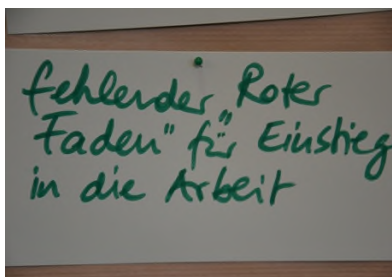 fehlender „Roter
Faden" für Einstieg
in die Arbeit